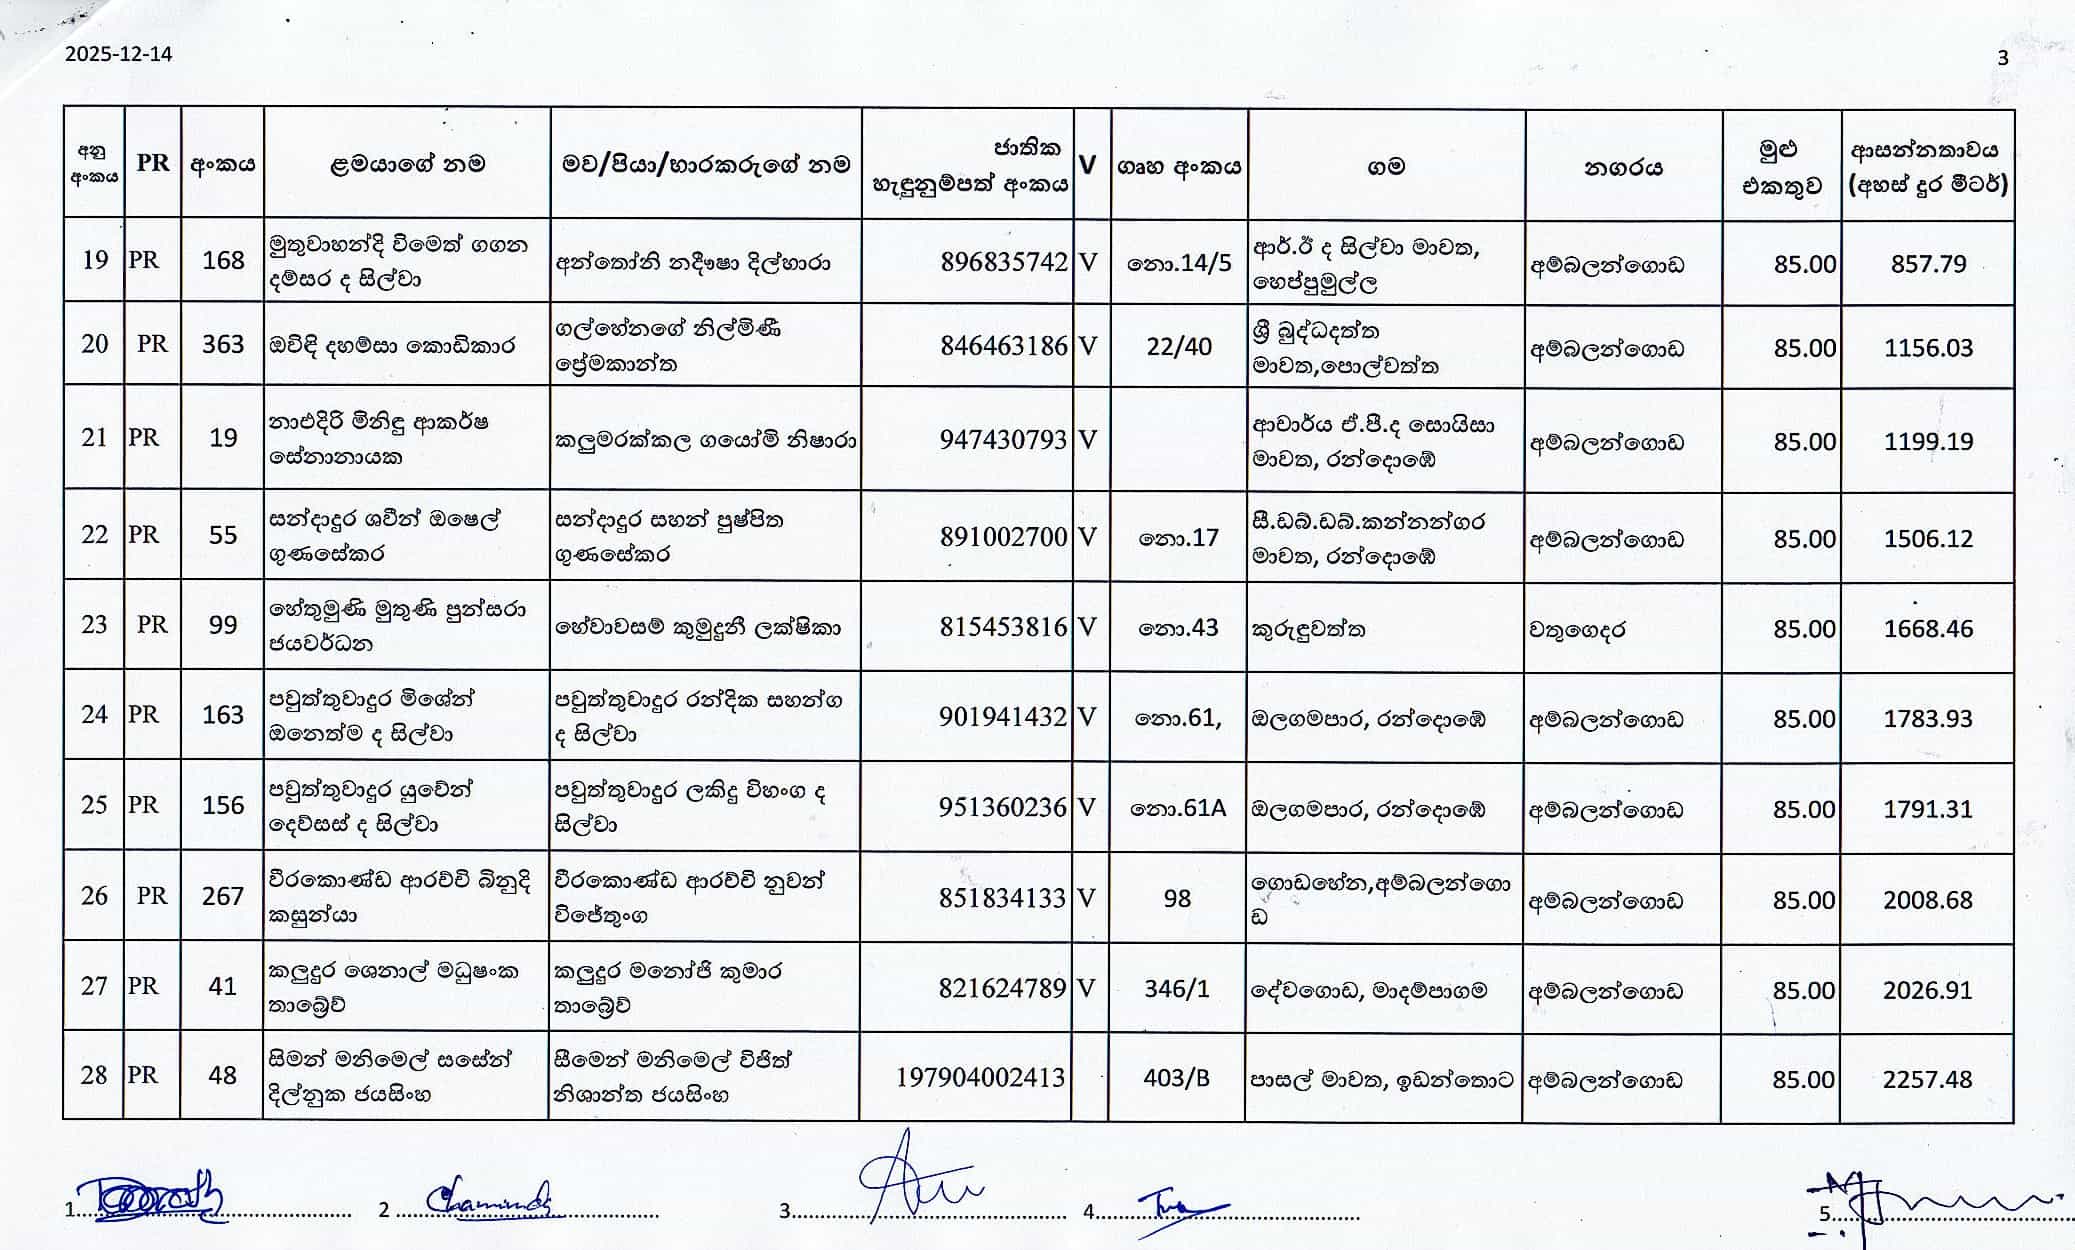 2025-12-14
3
අනු අංකය PR අංකය ළමයාගේ නම මව/පියා/භාරකරුගේ නම ජාතික හැඳුනුම්පත් අංකය V ගෘහ අංකය ගම නගරය මුළු එකතුව ආසන්නතාවය (අහස් දුර මීටර්)
19 PR 168 මුතුවාහන්දි විමෙත් ගගන දම්සර ද සිල්වා අන්තෝනි නදීෂා දිල්හාරා 896835742 V නො.14/5 ආර්.ඊ ද සිල්වා මාවත, හෙප්පුමුල්ල අම්බලන්ගොඩ 85.00 857.79
20 PR 363 ඔවිඳි දහම්සා කොඩිකාර ගල්හේනගේ නිල්මිණී ප්‍රේමකාන්ත 846463186 V 22/40 ශ්‍රී බුද්ධදත්ත මාවත,පොල්වත්ත අම්බලන්ගොඩ 85.00 1156.03
21 PR 19 නාඑදිරි මිනිඳු ආකර්ෂ සේනානායක කලුමරක්කල ගයෝමි නිෂාරා 947430793 V ආචාර්ය ඒ.පී.ද සොයිසා මාවත, රන්දොඹේ අම්බලන්ගොඩ 85.00 1199.19
22 PR 55 සන්දාදුර ශවීන් ඔෂෙල් ගුණසේකර සන්දාදුර සහන් පුෂ්පිත ගුණසේකර 891002700 V නො.17 සී.ඩබ්.ඩබ්.කන්නන්ගර මාවත, රන්දොඹේ අම්බලන්ගොඩ 85.00 1506.12
23 PR 99 හේතුමුණි මුතුණි පුන්සරා ජයවර්ධන හේවාවසම් කුමුදුනී ලක්ෂිකා 815453816 V නො.43 කුරුඳුවත්ත වතුගෙදර 85.00 1668.46
24 PR 163 පවුත්තුවාදුර මිශේන් ඔනෙත්ම ද සිල්වා පවුත්තුවාදුර රන්දික සහන්ග ද සිල්වා 901941432 V නො.61, ඔලගම්පාර, රන්දොඹේ අම්බලන්ගොඩ 85.00 1783.93
25 PR 156 පවුත්තුවාදුර යුවේන් දෙව්සස් ද සිල්වා පවුත්තුවාදුර ලකිදු විහංග ද සිල්වා 951360236 V නො.61A ඔලගම්පාර, රන්දොඹේ අම්බලන්ගොඩ 85.00 1791.31
26 PR 267 වීරකොණ්ඩ ආරච්චි බිනුදි කසුන්යා වීරකොණ්ඩ ආරච්චි නුවන් විජේතුංග 851834133 V 98 ගොඩහේන,අම්බලන්ගොඩ අම්බලන්ගොඩ 85.00 2008.68
27 PR 41 කලුදුර ශෙනාල් මධුෂංක තාබ්‍රේව් කලුදුර මනෝජි කුමාර තාබ්‍රේව් 821624789 V 346/1 දේවගොඩ, මාදම්පාගම අම්බලන්ගොඩ 85.00 2026.91
28 PR 48 සිමන් මනිමෙල් සසේන් දිල්නුක ජයසිංහ සීමෙන් මනිමෙල් විජිත් නිශාන්ත ජයසිංහ 197904002413 403/B පාසල් මාවත, ඉඩන්තොට අම්බලන්ගොඩ 85.00 2257.48
1. 2 Chaminda 3. 4. 5.